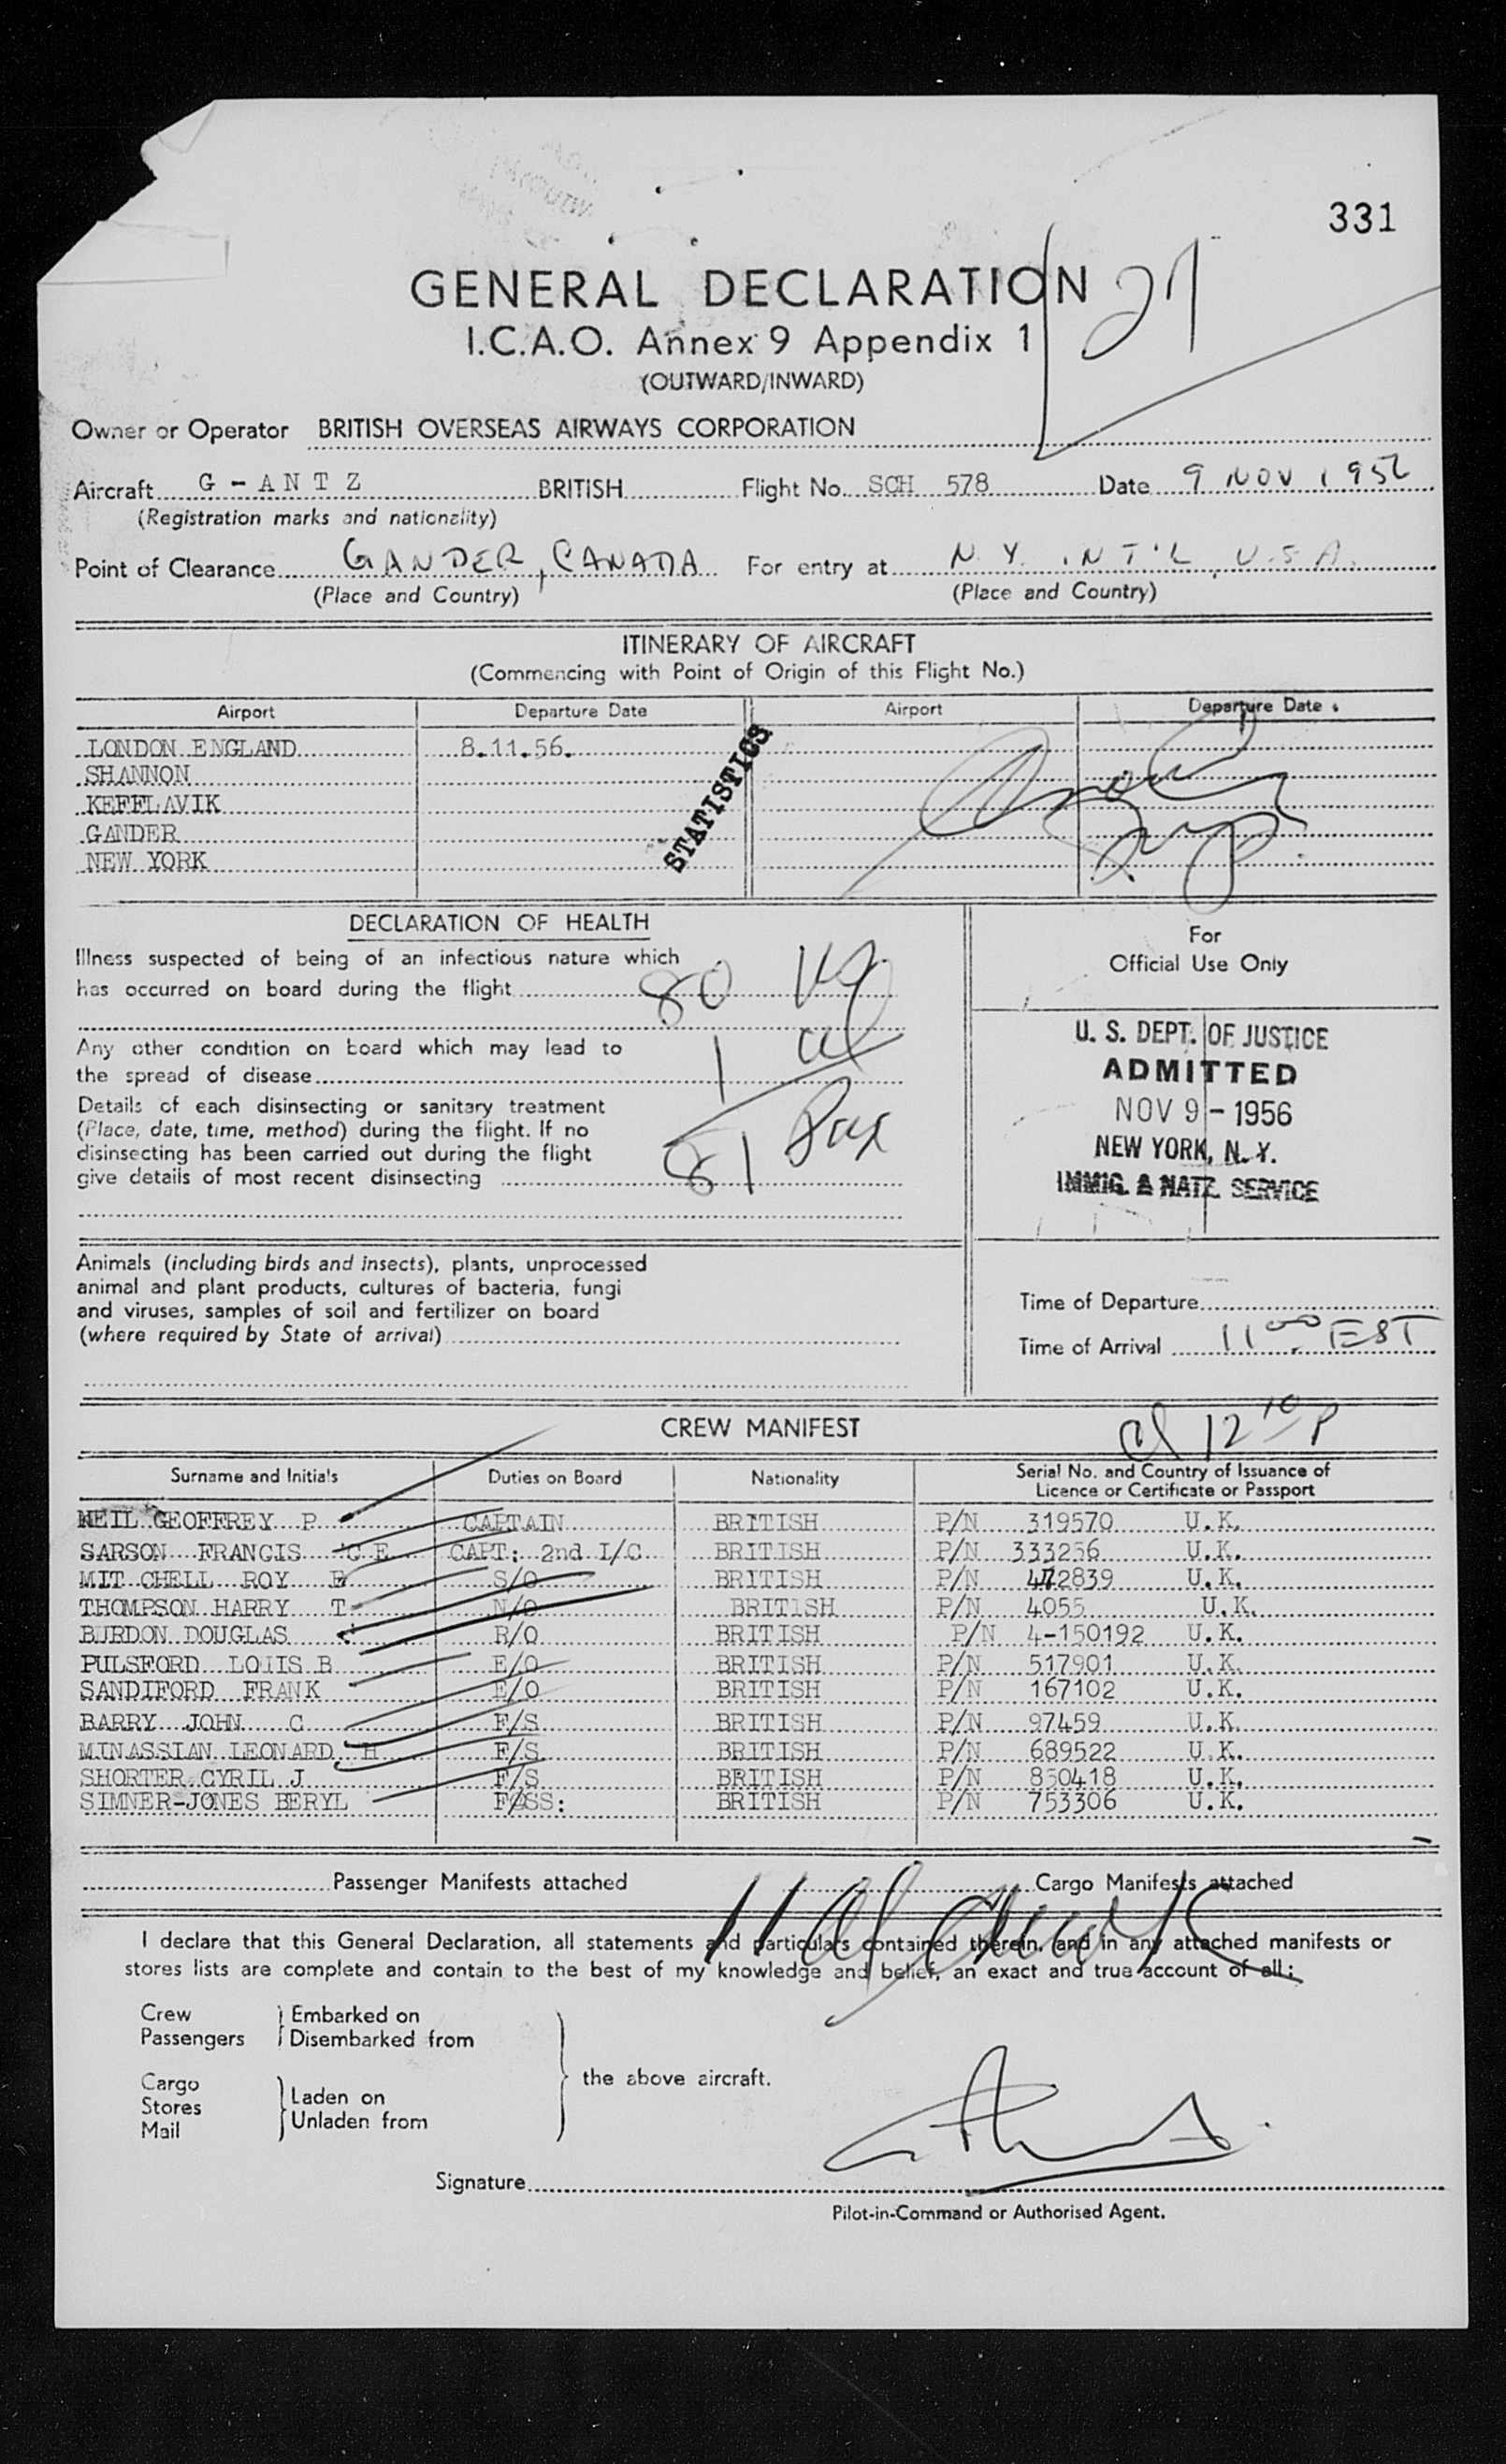 331
GENERAL DECLARATION
21
I.C.A.O. Annex 9 Appendix 1
(OUTWARD/INWARD)
Owner or Operator BRITISH OVERSEAS AIRWAYS CORPORATION
Aircraft G - A N T Z BRITISH Flight No. SCH 578 Date 9 NOV 1956
(Registration marks and nationality)
Point of Clearance GANDER, CANADA For entry at N.Y. INT'L, U.S.A.
(Place and Country) (Place and Country)
ITINERARY OF AIRCRAFT
(Commencing with Point of Origin of this Flight No.)
Airport Departure Date Airport Departure Date
LONDON ENGLAND 8.11.56.
SHANNON
KEFFLAVIK
GANDER
NEW YORK
STATISTICS
DECLARATION OF HEALTH
Illness suspected of being of an infectious nature which
has occurred on board during the flight 80
Any other condition on board which may lead to
the spread of disease 1
Details of each disinsecting or sanitary treatment
(Place, date, time, method) during the flight. If no
disinsecting has been carried out during the flight
give details of most recent disinsecting
81 Pax
For
Official Use Only
U. S. DEPT. OF JUSTICE
ADMITTED
NOV 9 - 1956
NEW YORK, N. Y.
IMMIG. & NATZ. SERVICE
Animals (including birds and insects), plants, unprocessed
animal and plant products, cultures of bacteria, fungi
and viruses, samples of soil and fertilizer on board
(where required by State of arrival)
Time of Departure
Time of Arrival 11 00 EST
CREW MANIFEST
12 10 P
Surname and Initials Duties on Board Nationality Serial No. and Country of Issuance of
Licence or Certificate or Passport
NEIL GEOFFREY P CAPTAIN BRITISH P/N 319570 U.K.
SARSON FRANCIS C E CAPT: 2nd I/C BRITISH P/N 333256 U.K.
MIT CHELL ROY E S/O BRITISH P/N 472839 U.K.
THOMPSON HARRY T N/O BRITISH P/N 4055 U.K.
BURDON DOUGLAS R/O BRITISH P/N 4-150192 U.K.
PULSFORD LOUIS B E/O BRITISH P/N 517901 U.K.
SANDIFORD FRANK E/O BRITISH P/N 167102 U.K.
BARRY JOHN C F/S BRITISH P/N 97459 U.K.
MINASSIAN LEONARD H F/S BRITISH P/N 689522 U.K.
SHORTER CYRIL J F/S BRITISH P/N 850418 U.K.
SIMNER-JONES BERYL BRITISH P/N 753306 U.K.
Passenger Manifests attached Cargo Manifests attached
11
I declare that this General Declaration, all statements and particulars contained therein, and in any attached manifests or
stores lists are complete and contain to the best of my knowledge and belief, an exact and true account of all:
Crew Embarked on
Passengers Disembarked from
the above aircraft.
Cargo
Stores Laden on
Mail Unladen from
Signature
Pilot-in-Command or Authorised Agent.